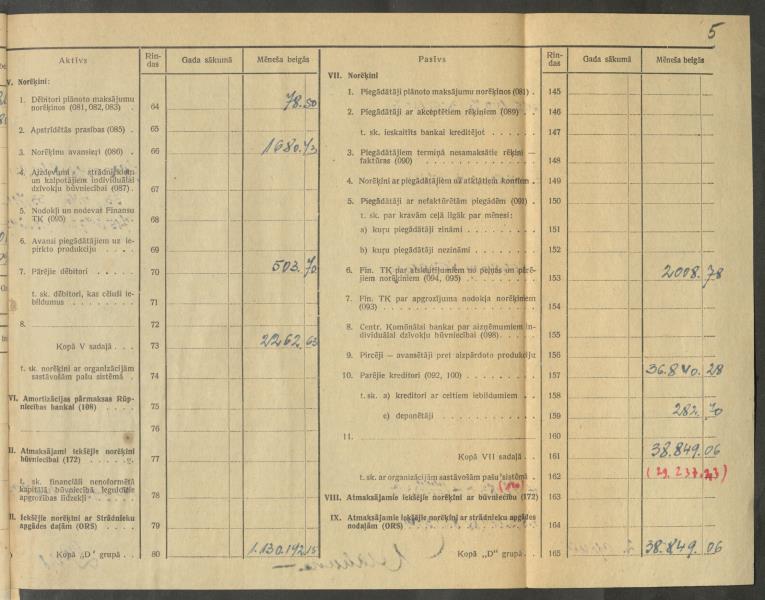 5
Aktīvs
Rindas
Gada sākumā
Mēneša beigās
V. Norēķini:
1. Debitori plānoto maksājumu norēķinos (081, 082, 083) 64 78.50
2. Apstrīdētās prasības (085) 65
3. Norēķinu avansieŗi (086) 66 1680.73
4. Aizdevumi strādniekiem un kalpotājiem individuālai dzīvokļu būvniecībai (087) 67
5. Nodokļi un nodevas Finansu TK (095) 68
6. Avansi piegādātājiem uz iepirkto produkciju 69
7. Pārējie debitori 70 503.70
t. sk. debitori, kas cēluši iebildumus 71
8. 72
Kopā V sadaļā 73 2262.63
t. sk. norēķini ar organizācijām sastāvošām pašu sistēmā 74
VI. Amortizācijas pārmaksas Rūpniecības bankai (108) 75
76
II. Atmaksājami iekšējie norēķini būvniecībai (172) 77
t. sk. finansiāli nenoformētā kapitālā būvniecībā ieguldītie apgrozības līdzekļi 78
II. Iekšējie norēķini ar Strādnieku apgādes daļām (ORS) 79
Kopā „D" grupā 80 1.130.192.15
Pasīvs
Rindas
Gada sākumā
Mēneša beigās
VII. Norēķini
1. Piegādātāji plānoto maksājumu norēķinos (081) 145
2. Piegādātāji ar akceptētiem rēķiniem (089) 146
t. sk. ieskaitīts bankai kreditējot 147
3. Piegādātājiem termiņā nesamaksātie rēķini — faktūras (090) 148
4. Norēķini ar piegādātājiem uz atklātiem kontiem 149
5. Piegādātāji ar nefaktūrētām piegādēm (091) 150
t. sk. par kravām ceļā ilgāk par mēnesi:
a) kuŗu piegādātāji zināmi 151
b) kuŗu piegādātāji nezināmi 152
6. Fin. TK par atskaitījumiem no peļņas un pārējiem norēķiniem (094, 095) 153 2008.78
7. Fin. TK par apgrozījuma nodokļa norēķiniem (093) 154
8. Centr. Komūnālai bankai par aizņēmumiem individuālai dzīvokļu būvniecībai (098) 155
9. Pircēji — avansētāji pret aizpārdoto produkciju 156
10. Pārējie kreditori (092, 100) 157 36.840.28
t. sk. a) kreditori ar celtiem iebildumiem 158
c) deponētāji 159 282.70
11. 160
Kopā VII sadaļā 161 38.849.06
t. sk. ar organizācijām sastāvošām pašu sistēmā 162 (29.237.23)
VIII. Atmaksājamie iekšējie norēķini ar būvniecību (172) 163
IX. Atmaksājamie iekšējie norēķini ar strādnieku apgādes nodaļām (ORS) 164
Kopā „D" grupā 165 38.849.06